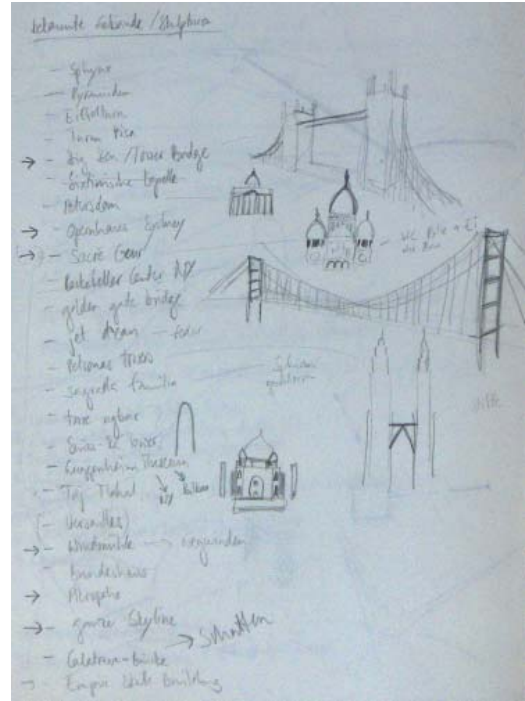 bekannte Gebäude / Skulpturen
- Sphynx
- Pyramiden
- Eiffelturm
- Turm Pisa
→ - Big Ben / Tower Bridge
- Sixtinische Kapelle
- Petersdom
→ - Opernhaus Sydney
(→) - Sacré Coeur
- Rockefeller Center NY
- golden gate bridge
- jet d'eau
- Petronas towers
- sagrada família
- torre agbar
- Swiss Re tower
- Guggenheim Museum
- Taj Mahal
NY
Bilbao
(- Versailles)
→ - Windmühle →
- Bundeshaus
→ Akropolis
→ - ganze Skyline
→ Schatten
- Calatrava-brücke
→ - Empire State Building